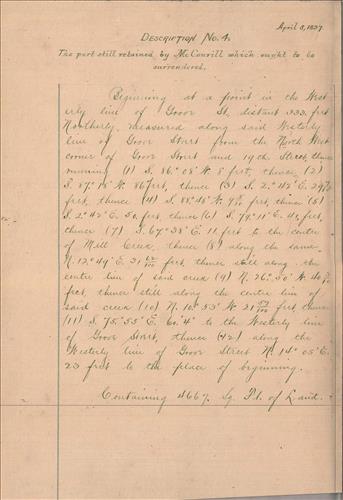 April 8, 1897.
Description No. 4.
The part still retained by McConvill which ought to be
surrendered.
Beginning at a point in the West
erly line of Goor St. distant 333. feet
Northerly, measured along said Westerly
line of Goor Street from the North West
corner of Goor Street and 19th Street, thence
running (1) S. 86° 08' W. 8 feet, thence, (2)
S. 87° 18' W. 86 feet, thence (3) S. 2° 42' E.
feet, thence (4) S. 88° 48' W. feet, thence (5)
S. 2° 42' E. 50. feet, thence (6) S. 79° 11' E. 41. feet,
thence (7) S. 67° 38' E. 11 feet to the centre
of Mill Creek, thence (8) along the same
N. 12° 49' E. 31 feet, thence still along the
centre line of said creek (9) N. 26° 30' W. 40
feet, thence still along the centre line of
said creek (10) N. 10° 53' W. 21 feet thence
(11) S. 75° 55' E. to the Westerly line
of Goor Street, thence (12) along the
Westerly line of Goor Street N. 14° 05' E.
23 feet to the place of beginning.
Containing 4667. Sq. Ft. of Land.